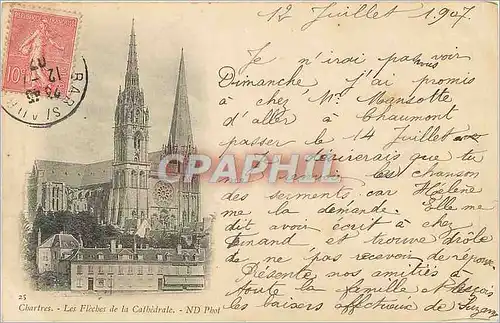 12 Juillet 1907
Je n'irai pas vous voir
Dimanche j'ai promis
à chez Mr Mansotte
d'aller à Chaumont
passer le 14 Juillet
désirerais que tu
chanson
des serments car Hélène
me la demande. Elle me
dit avoir écrit à chez
Finand et trouve drôle
de ne pas recevoir de réponse
Présente nos amitiés à
toute la famille et reçois
les baisers affectueux de Suzanne
CPAPHIL.COM
10
BAR S/ AUBE
25
Chartres. - Les Flèches de la Cathédrale. - ND Phot